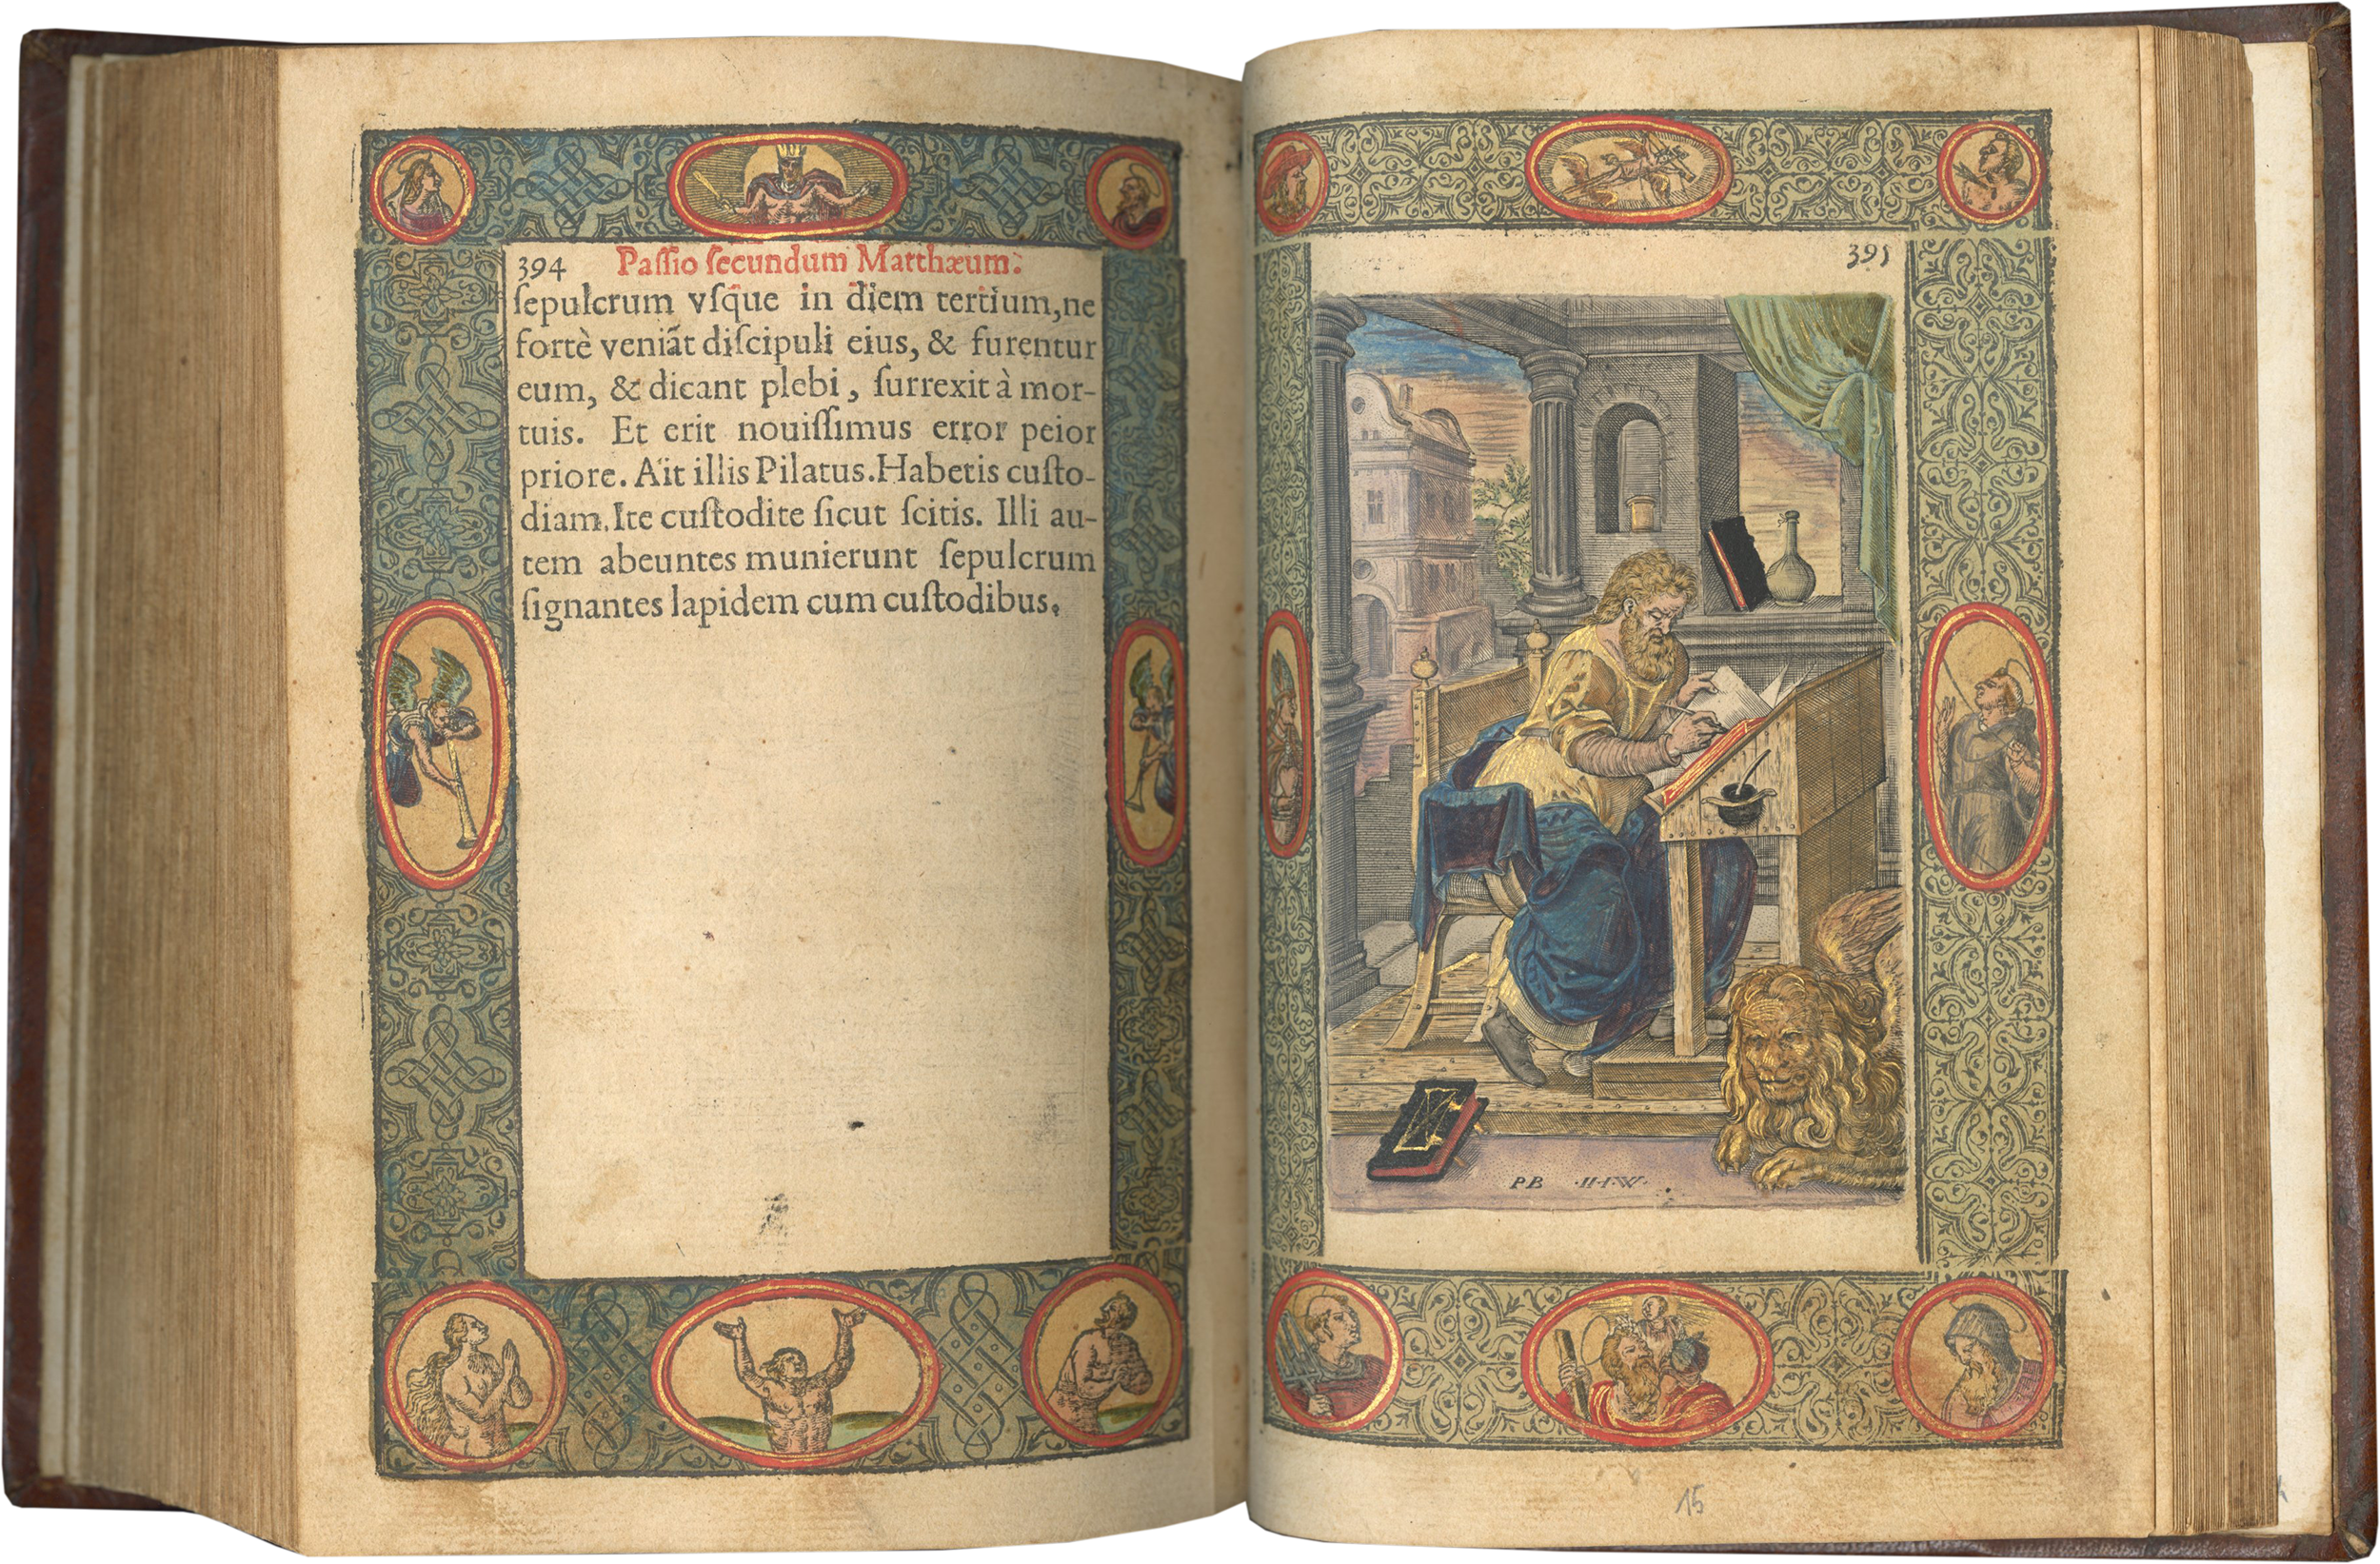 394 Paſſio ſecundum Matthæum.
ſepulcrum vſq̃ue in diem tertium,ne
fortè veniãt diſcipuli eius, & furentur
eum, & dicant plebi, ſurrexit à mor-
tuis. Et erit nouiſſimus error peior
priore. Ait illis Pilatus. Habetis cuſto-
diam. Ite cuſtodite ſicut ſcitis. Illi au-
tem abeuntes munierunt ſepulcrum
ſignantes lapidem cum cuſtodibus.
395
PB ·H·I·W·
15